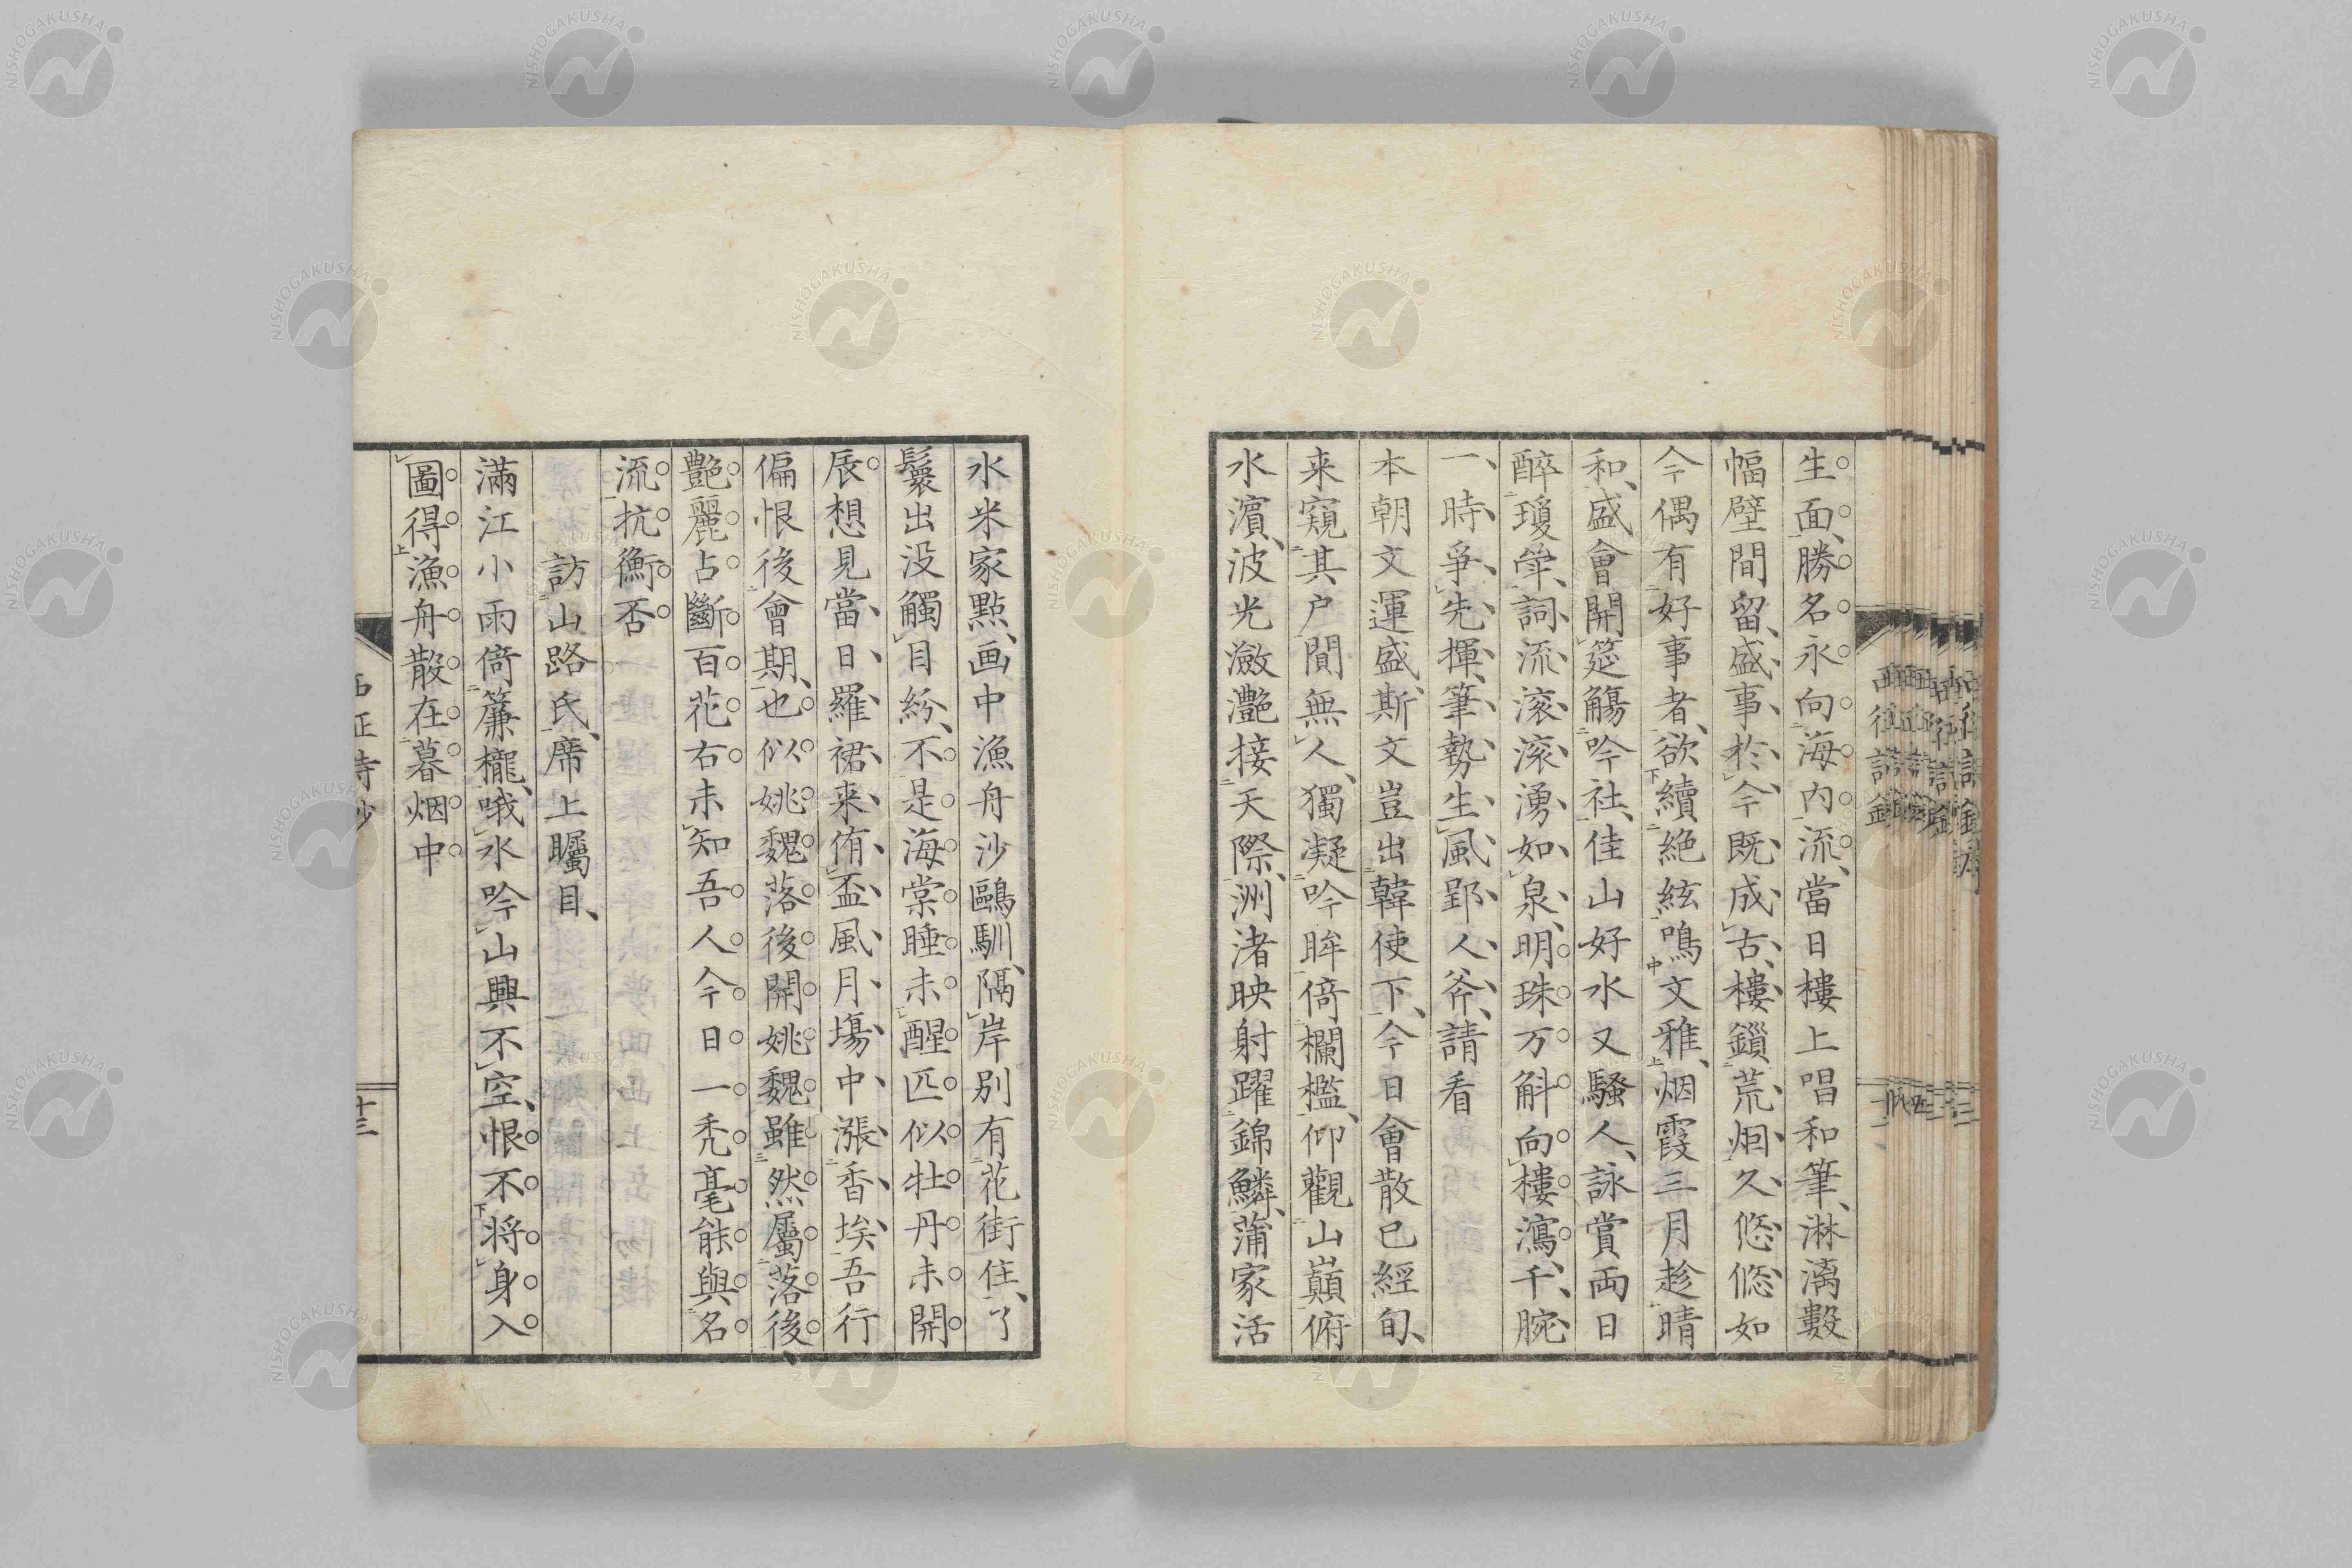 生面勝名永向海内流當日樓上唱和筆淋漓數
幅壁間留盛事於今既成古樓鎖荒烟久悠悠如
今偶有好事者欲續絶絃鳴文雅烟霞三月趁晴
和盛會開筵觴吟社佳山好水又騷人詠賞両日
醉瓊 詞流滚滚湧如泉明珠万斛向樓瀉千腕
一時爭先揮筆勢生風郢人斧請看
本朝文運盛斯文豈出韓使下今日會散已經旬
来窺其户閴無人獨凝吟眸倚欄檻仰觀山巔俯
水濵波光瀲灔接天際洲渚映射躍錦鱗蒲家活
水米家點画中漁舟沙鷗馴隔岸別有花街住了
鬟出没觸目紛不是海棠睡未醒匹似牡丹未開
辰想見當日羅裙来侑盃風月塲中漲香埃吾行
偏恨後會期也似姚魏落後開姚魏雖然屬落後
艶麗占斷百花右未知吾人今日一禿毫能與名
流抗衡否
訪山路氏席上矚目
滿江小雨倚簾櫳哦水吟山興不空恨不将身入
圖得漁舟散在暮烟中
十三
NISHOGAKUSHA